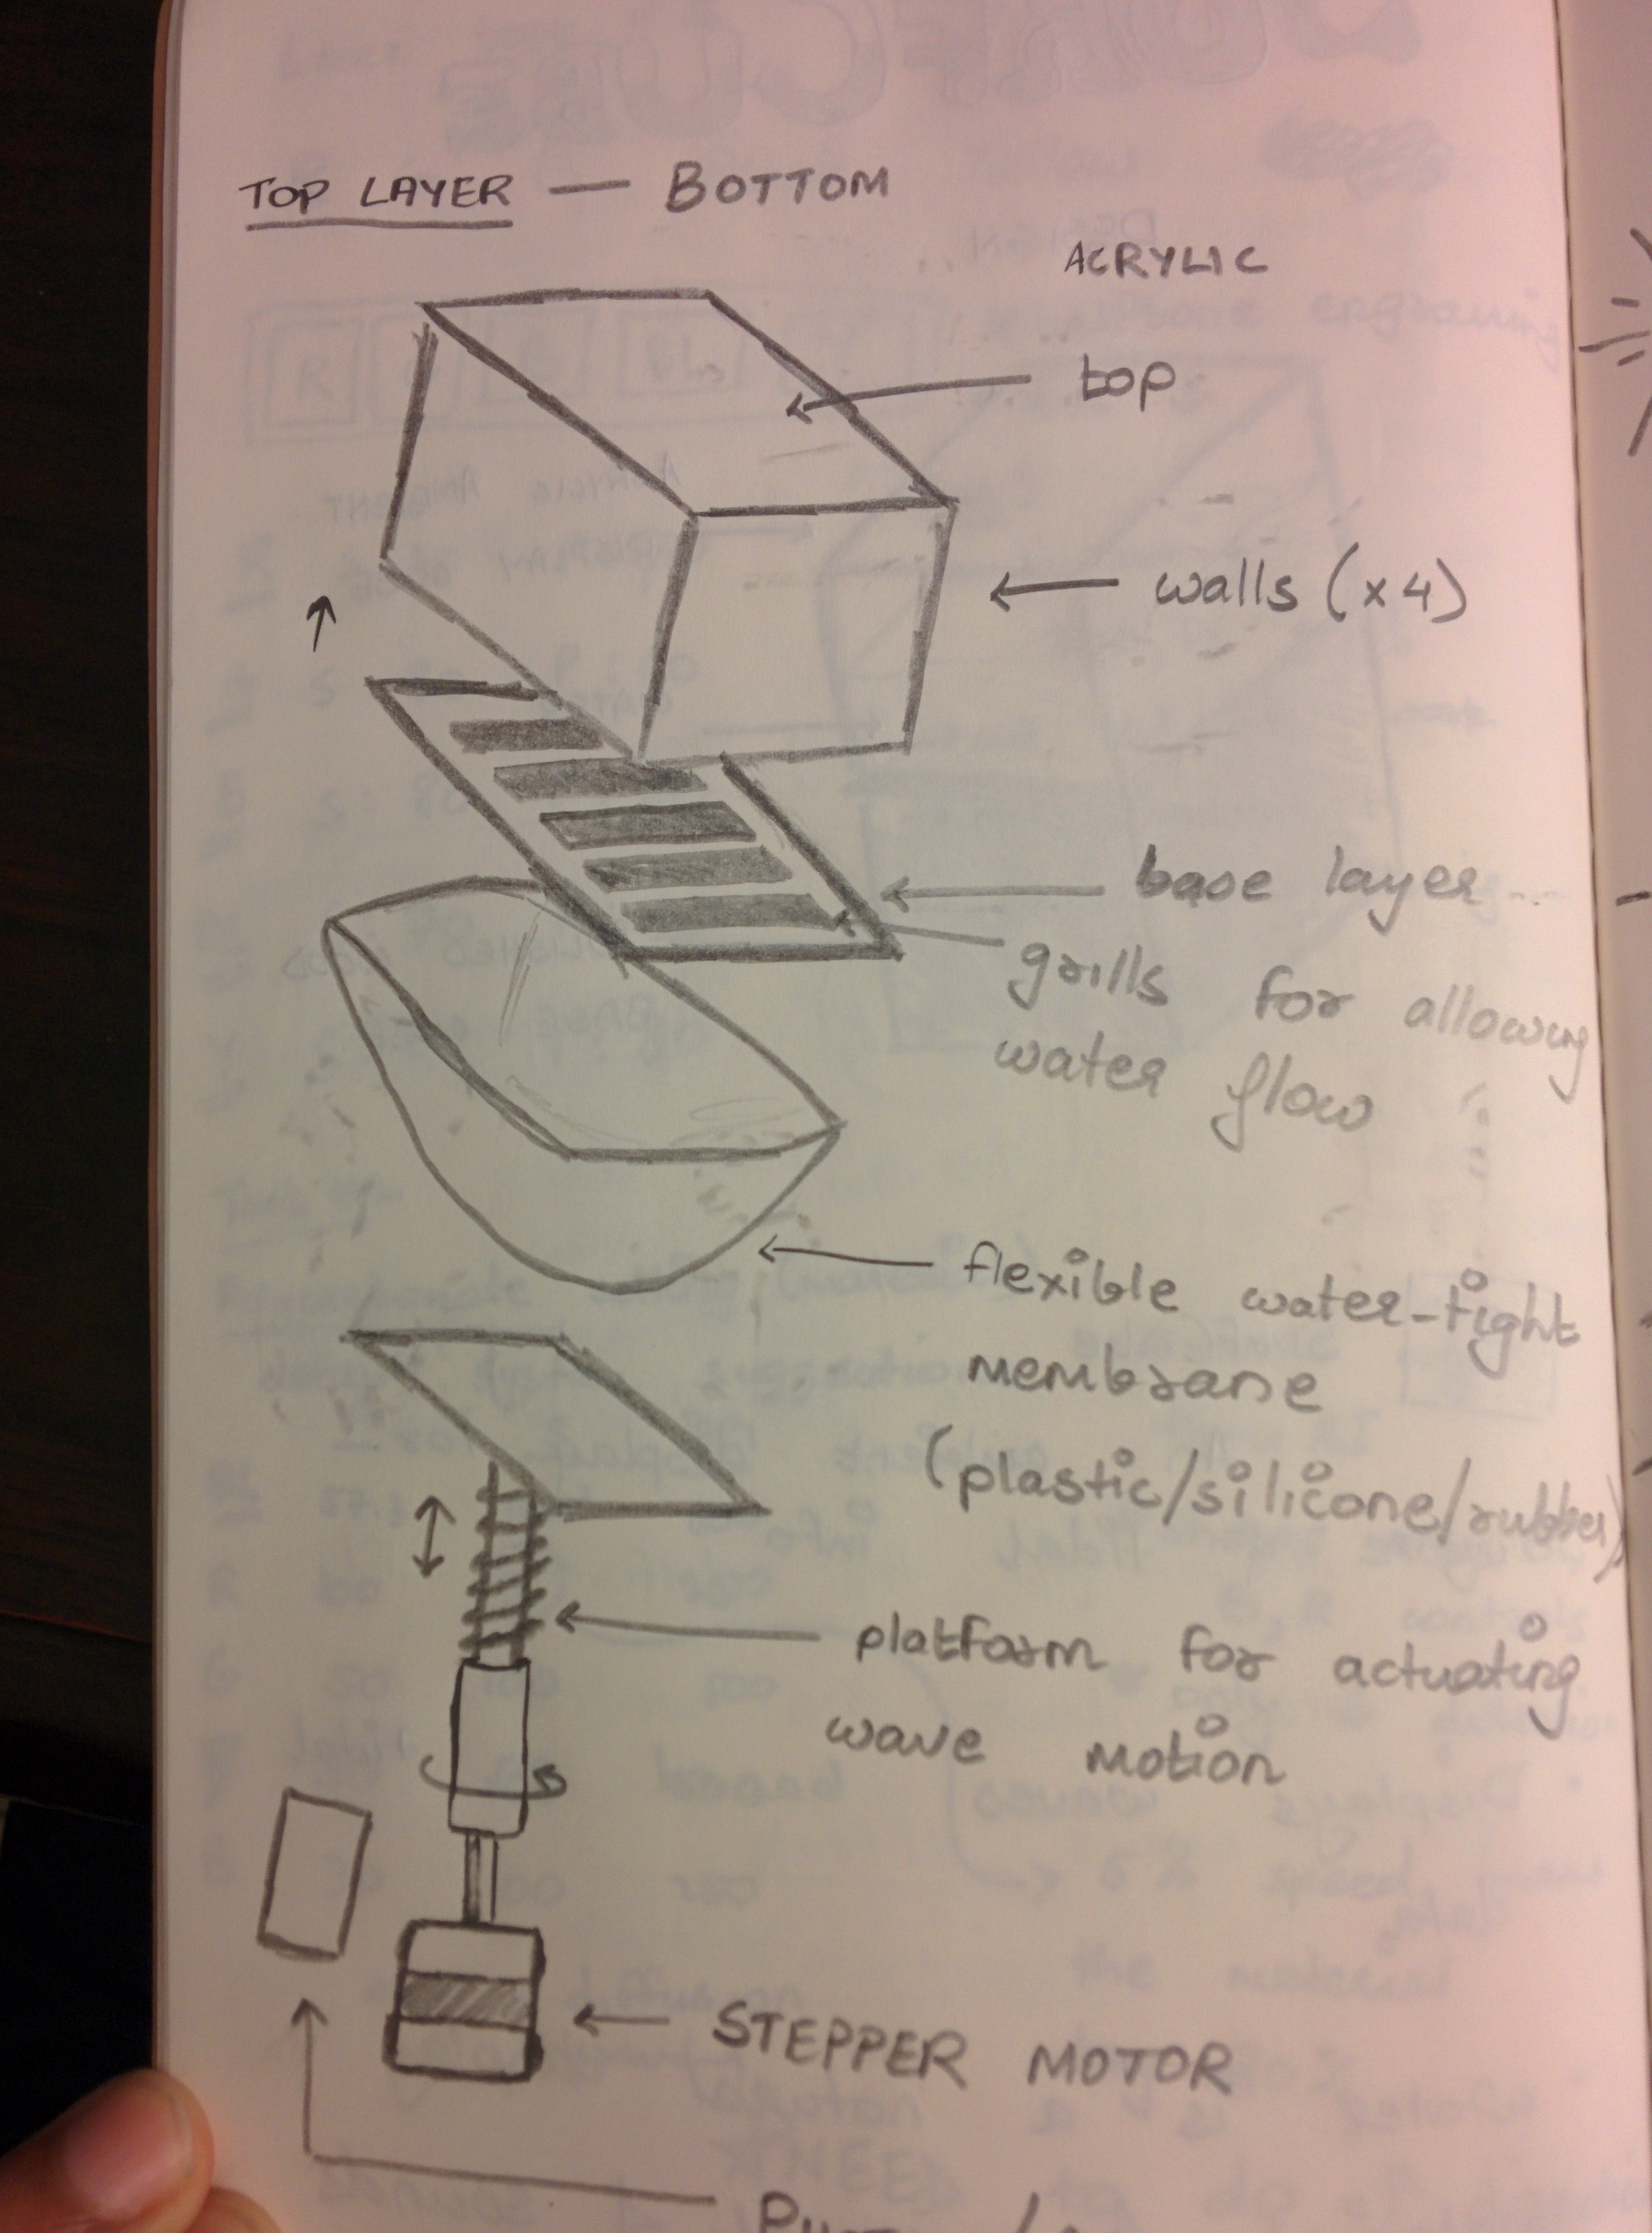 TOP LAYER — BOTTOM
ACRYLIC
top
walls (x4)
base layer
grills for allowing
water flow
flexible water-tight
membrane
(plastic/silicone/rubber)
platform for actuating
wave motion
STEPPER MOTOR